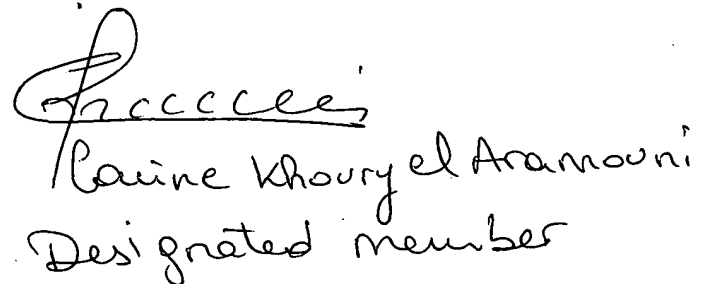 Carine Khoury el Aramouni
Designated member